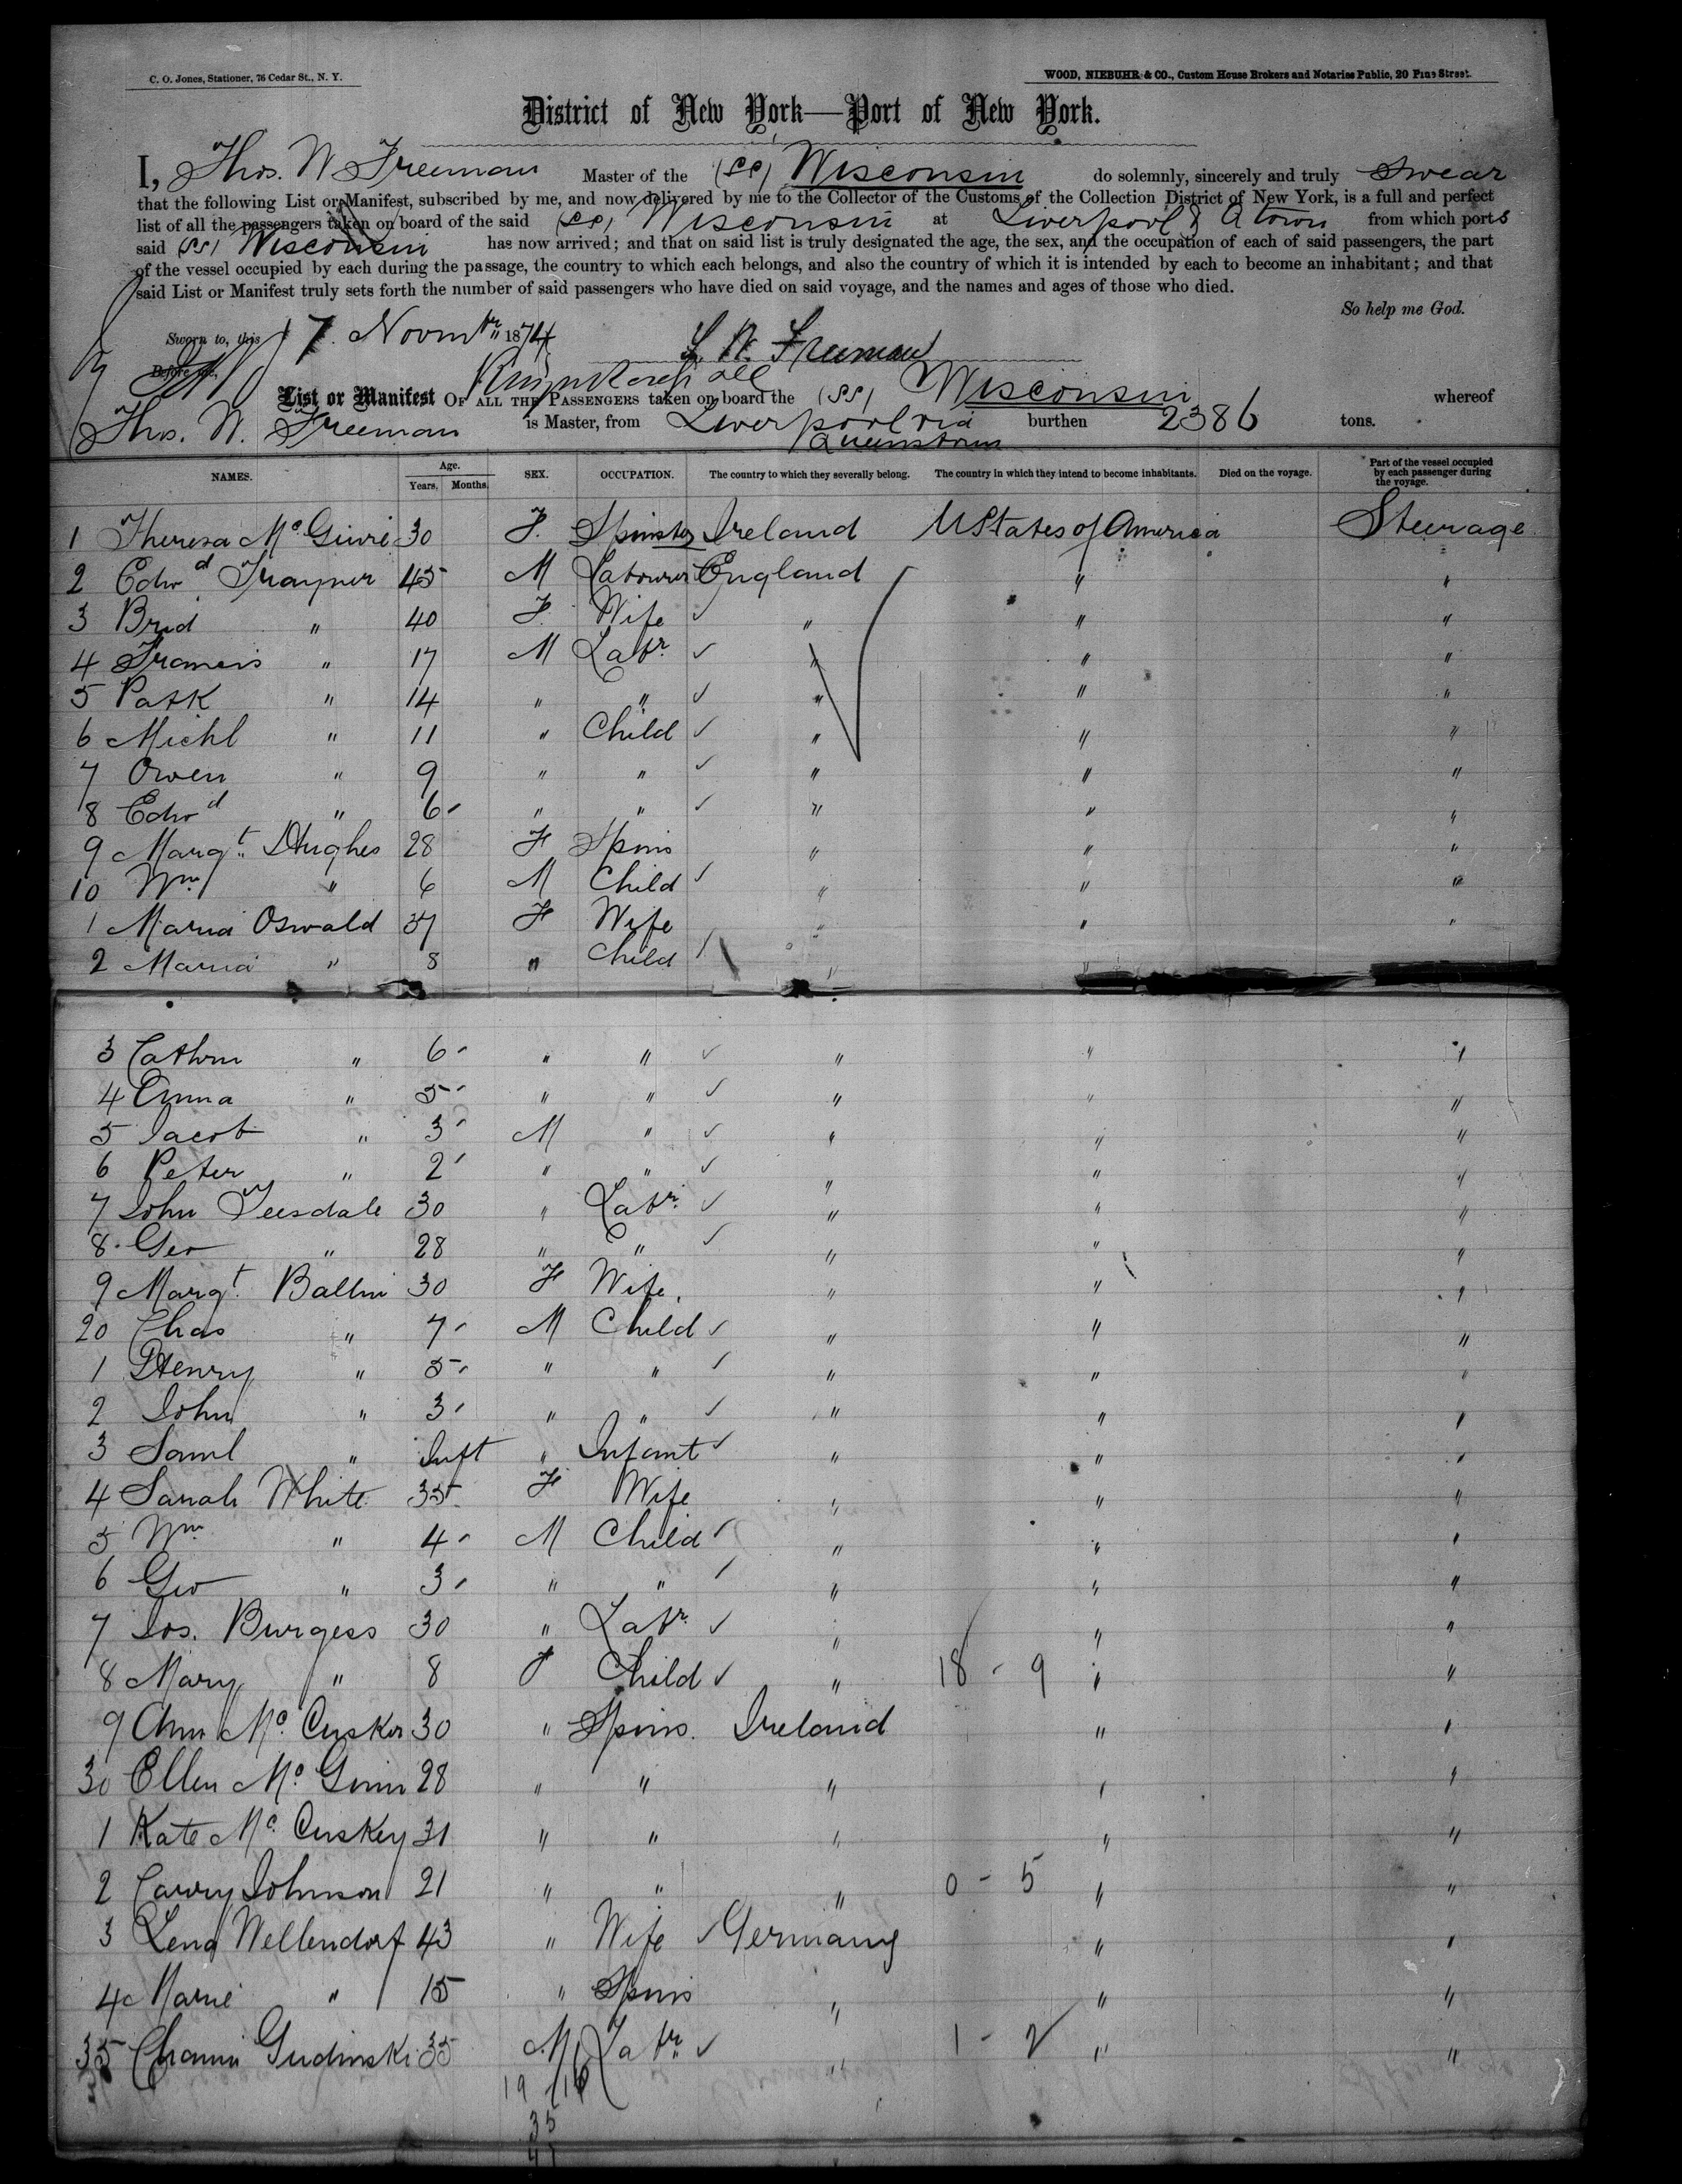 C. O. Jones, Stationer, 76 Cedar St., N. Y.
WOOD, NIEBUHR & CO., Custom House Brokers and Notaries Public, 20 Pine Street.
District of New York—Port of New York.
I, Thos. W. Freeman Master of the (SS) Wisconsin do solemnly, sincerely and truly Swear
that the following List or Manifest, subscribed by me, and now delivered by me to the Collector of the Customs of the Collection District of New York, is a full and perfect
list of all the passengers taken on board of the said (SS) Wisconsin at Liverpool & Qtown from which ports
said (SS) Wisconsin has now arrived; and that on said list is truly designated the age, the sex, and the occupation of each of said passengers, the part
of the vessel occupied by each during the passage, the country to which each belongs, and also the country of which it is intended by each to become an inhabitant; and that
said List or Manifest truly sets forth the number of said passengers who have died on said voyage, and the names and ages of those who died.
So help me God.
Sworn to, this 17 Novmbr 1874
Before me,
List or Manifest OF ALL THE PASSENGERS taken on board the (SS) Wisconsin whereof
Thos. W. Freeman is Master, from Liverpool via Queenstown burthen 2386 tons.
NAMES. Age. Years. Months. SEX. OCCUPATION. The country to which they severally belong. The country in which they intend to become inhabitants. Died on the voyage. Part of the vessel occupied by each passenger during the voyage.
1 Theresa Mc 30 F. Spinster Ireland UStates of America Steerage
2 Edwd Traynor 45 M Labourer England " "
3 Brid " 40 F. Wife " " "
4 Francis " 17 M Labr " " "
5 Patk " 14 " " " " "
6 Michl " 11 " Child " " "
7 Owen " 9 " " " " "
8 Edwd " 6 " " " " "
9 Margt. Hughes 28 F Spins " " "
10 Wm " 6 M Child " " "
1 Maria Oswald 37 F Wife " " "
2 Maria " 8 " Child " "
3 Cathrn " 6 " " " " "
4 Anna " 5 " " " " "
5 Jacob " 3 M " " " "
6 Peter " 2 " " " " "
7 John Teesdale 30 " Labr. " " "
8 Geo " 28 " " " " "
9 Margt. 30 F Wife. " " "
20 Chas " 7 M Child " " "
1 Henry " 5 " " " " "
2 John " 3 " " " " "
3 Saml " Inft " Infant " " "
4 Sarah White 35 F Wife " " "
5 Wm " 4 M Child " " "
6 Geo " 3 " " " " "
7 Jos. Burgess 30 " Labr. " " "
8 Mary " 8 F Child " 18 - 9 " "
9 Ann Mc. Cusker 30 " Spins. Ireland " "
30 Ellen Mc. 28 " " " " "
1 Kate Mc. Cuskey 31 " " " " "
2 Carry Johnson 21 " " " 0 - 5 " "
3 Lena Wellendorf 43 " Wife Germany " "
4 Marie " 15 " Spins " " "
35 Gudinski 35 M Labr. " 1 - 2 " "
19 / 16
35